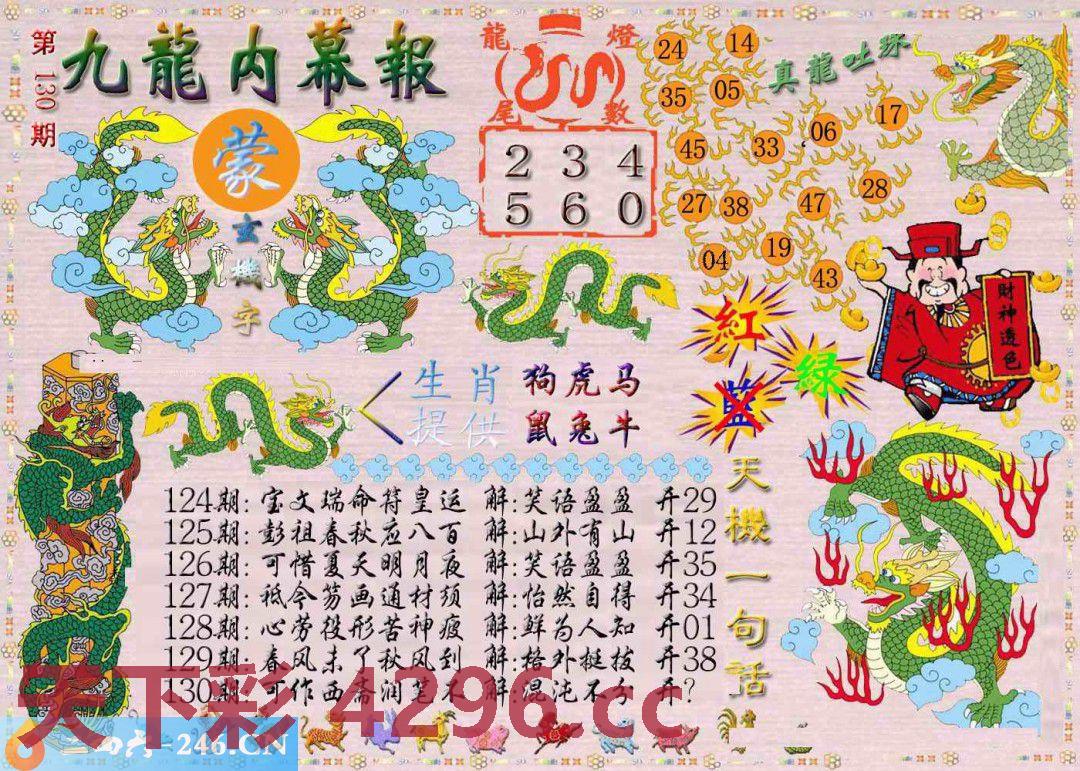 第130期
九龍内幕報
蒙
玄機字
龍尾
燈數
2 3 4
5 6 0
真龍吐珠
24 14
35 05
45 33 06 17
27 38 47 28
04 19 43
財神透色
紅
綠
藍
生肖 狗虎马
提供 鼠兔牛
天機一句話
124期: 宝文瑞命符皇运 解:笑语盈盈 开29
125期: 彭祖春秋应八百 解:山外有山 开12
126期: 可惜夏天明月夜 解:笑语盈盈 开35
127期: 祗今笏画通材须 解:怡然自得 开34
128期: 心劳役形苦神疲 解:鲜为人知 开01
129期: 春风未了秋风到 解:格外挺拔 开38
130期: 可作西斋润笔不 解:混沌不分 开?
天下彩 4296.cc
246.CN